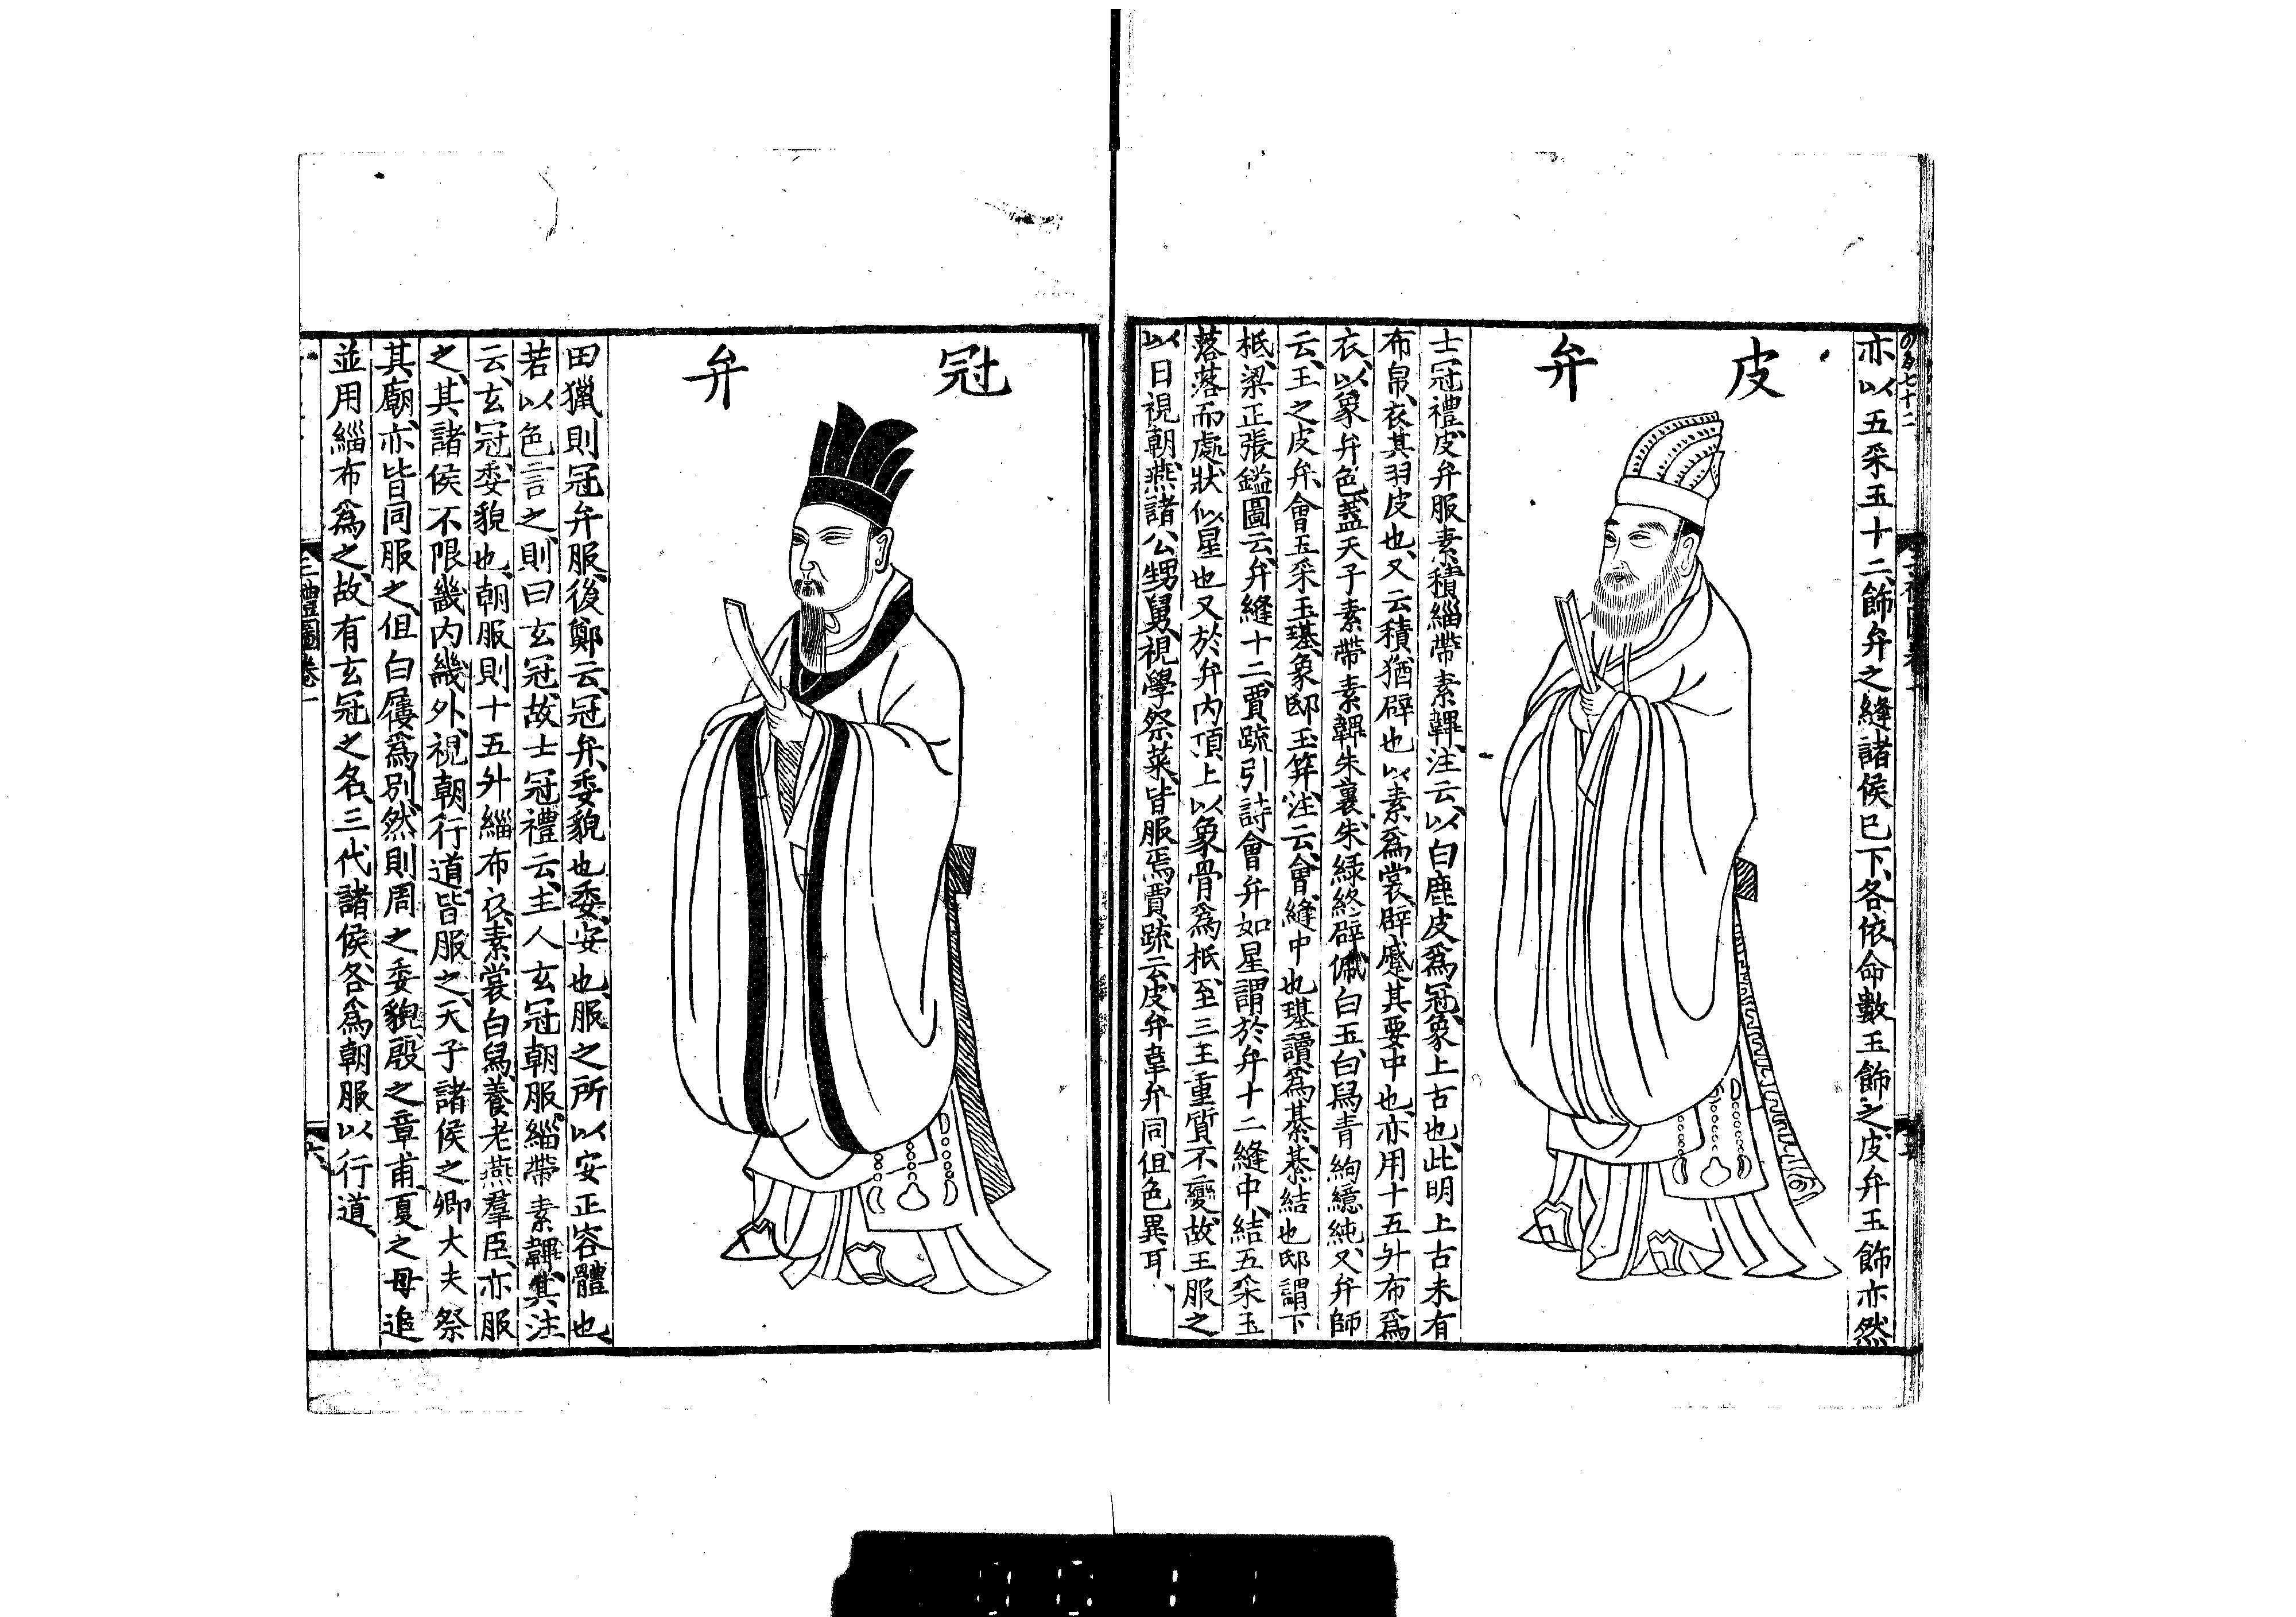 亦以五采玉十二飾弁之縫諸侯已下各依命數玉飾之皮弁玉飾亦然
皮弁
士冠禮皮弁服素積緇帶素韠注云以白鹿皮爲冠象上古也此明上古未有
布帛衣其羽皮也又云積猶辟也以素爲裳辟蹙其要中也亦用十五升布爲
衣以象弁色蓋天子素帶素韠朱裏朱綠終辟佩白玉白舄青絇繶純又弁師
云王之皮弁會五采玉璂象邸玉笄注云會縫中也璂讀爲綦綦結也邸謂下
柢梁正張鎰圖云弁縫十二賈疏引詩會弁如星謂於弁十二縫中結五采玉
落落而處狀似星也又於弁內頂上以象骨爲柢至三王重質不變故王服之
以日視朝燕諸公甥舅視學祭菜皆服焉賈疏云皮弁韋弁同但色異耳
冠弁
田獵則冠弁服後鄭云冠弁委貌也委安也服之所以安正容體也
若以色言之則曰玄冠故士冠禮云主人玄冠朝服緇帶素韠其注
云玄冠委貌也朝服則十五升緇布衣素裳白舄養老燕羣臣亦服
之其諸侯不限畿內畿外視朝行道皆服之天子諸侯之卿大夫祭
其廟亦皆同服之但白屨爲別然則周之委貌殷之章甫夏之母追
並用緇布爲之故有玄冠之名三代諸侯各爲朝服以行道
三禮圖卷一
六